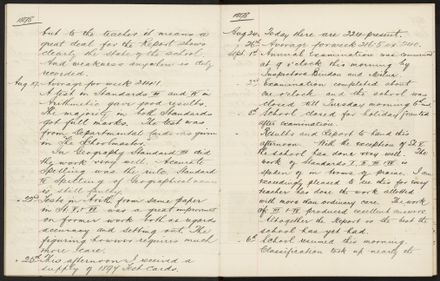 1898
but to the teacher it means a
great deal for the Report shows
clearly the state of the school
and weakness anywhere is duly
recorded.
Aug. 17. Average for week 214.1
A test in Standards III and IV in
Arithmetic gave good results.
The majority in both Standards
got full marks. The test was
from Departmental cards as given
in The Schoolmaster.
In Geography Standard III did
the work very well. Accurate
Spelling was the rule. Standard
IV Spelling of Geographical names
is still faulty.
Tests in Arith. from same paper
in St. V was a great improvement
on former work both as regards
accuracy and setting out. The
figuring however requires much
more care.
This afternoon I received a
supply of 1894 Test Cards.
1898
Aug. 24. Today there are 224 present.
Average for week 216.5
Sept. 1st Annual examination was commenced
at 9 o'clock this morning by
Inspectors
Examination completed about
one o'clock and the school was
closed till Tuesday morning
School closed for holiday granted
after examination.
Results and Report to hand this
afternoon. With the exception of St. V
the school has done very well. The
work of Standards I, II, III, IV is
spoken of in terms of praise. I am
exceedingly pleased to see this for every
teacher has done the work allotted
with more than ordinary care. The work
of III & IV produced excellent answers.
Altogether the Report is the best the
school has yet had.
6th School resumed this morning.
Classification took up nearly the